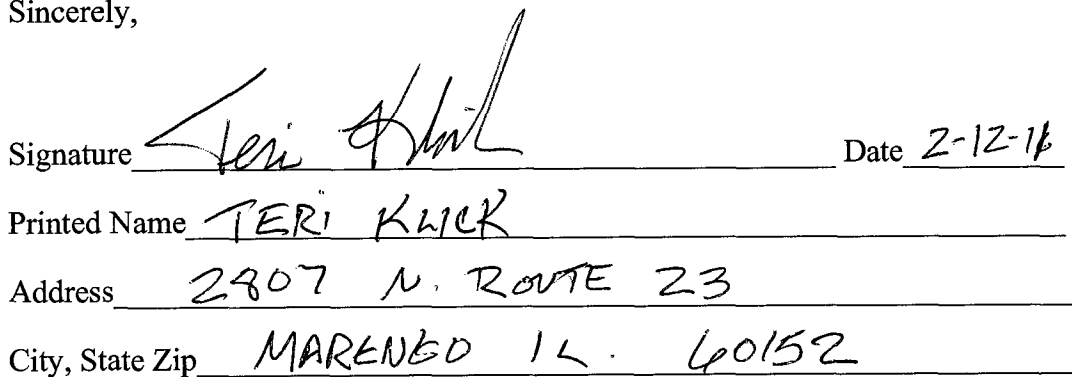 Sincerely,
Signature Teri Klick Date 2-12-16
Printed Name TERI KLICK
Address 2807 N. ROUTE 23
City, State Zip MARENGO IL. 60152